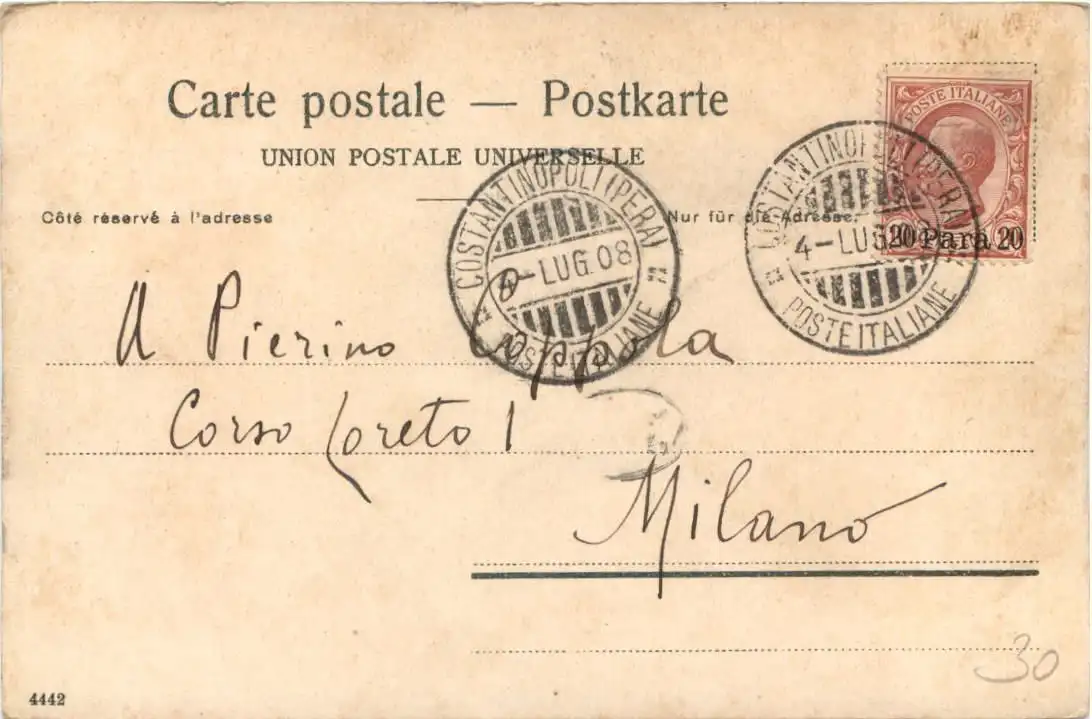 Carte postale — Postkarte
UNION POSTALE UNIVERSELLE
Côté réservé à l'adresse
Nur für die Adresse.
POSTE ITALIANE
20 Para 20
COSTANTINOPOLI (PERA)
4-LUG.08
POSTE ITALIANE
COSTANTINOPOLI (PERA)
4-LUG
POSTE ITALIANE
A Pierino Coppola
Corso Loreto 1
Milano
30
4442